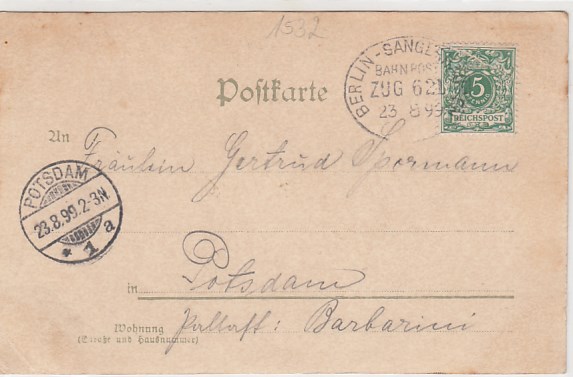 1532
BERLIN-SANGE
BAHNPOST
ZUG 621
23 8 99
5
REICHSPOST
Postkarte
An Fräulein Gertrud Spormann
POTSDAM
23.8.99.2-3N.
* 1 a
in Potsdam
Wohnung Pallast: Barbarini
(Straße und Hausnummer)